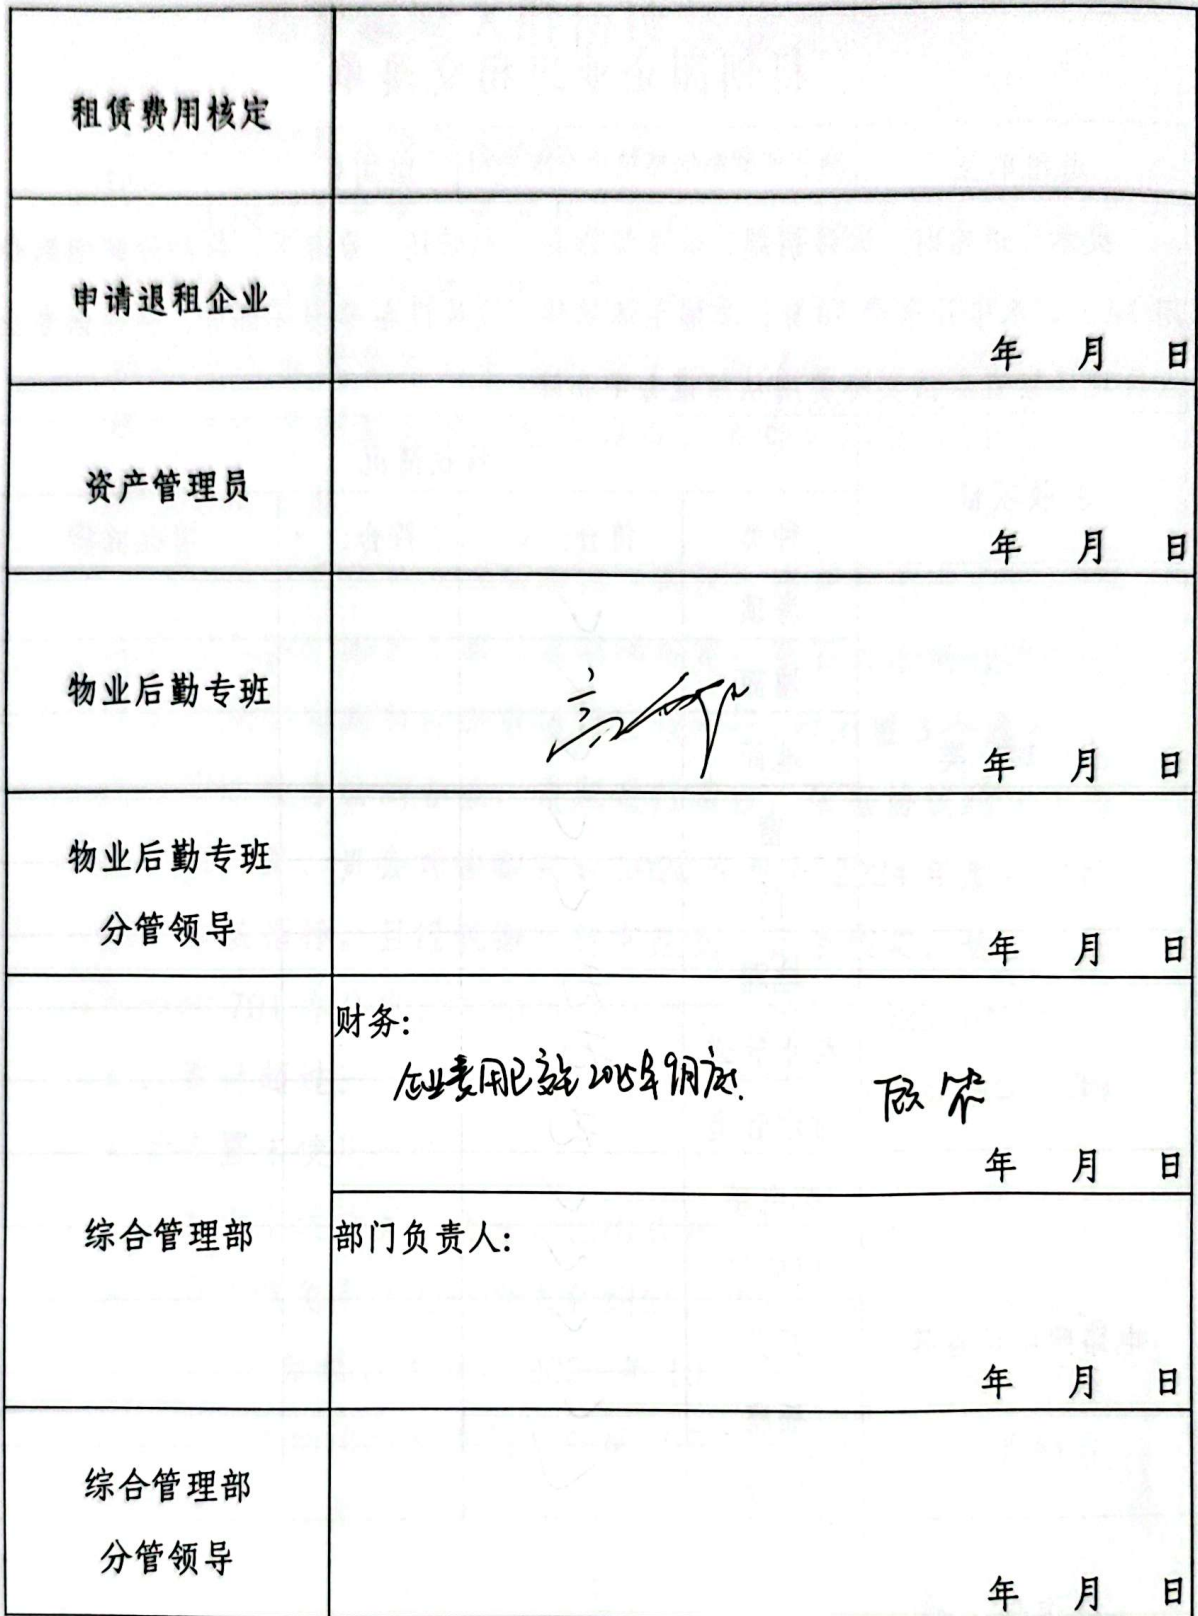 租赁费用核定
申请退租企业
年 月 日
资产管理员
年 月 日
物业后勤专班
高
年 月 日
物业后勤专班
分管领导
年 月 日
综合管理部
财务:
企业费用已交至2025年9月底.
年 月 日
部门负责人:
年 月 日
综合管理部
分管领导
年 月 日